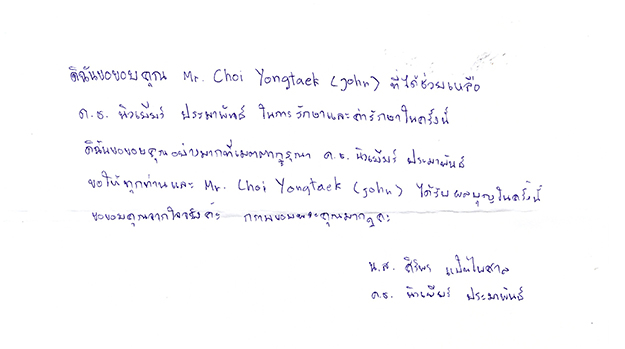 ดิฉันขอขอบคุณ Mr. Choi Yongtaek (john) ที่ได้ช่วยเหลือ
ด.ช. นิวเยียร์ ประมาพันธ์ ในการรักษาและค่ารักษาในครั้งนี้
ดิฉันขอขอบคุณอย่างมากที่เมตตากรุณา ด.ช. นิวเยียร์ ประมาพันธ์
ขอให้ทุกท่านและ Mr. Choi Yongtaek (john) ได้รับผลบุญในครั้งนี้
ขอขอบคุณจากใจจริงค่ะ กราบขอบพระคุณมากๆค่ะ
น.ส. ศิริพร
ด.ช. นิวเยียร์ ประมาพันธ์